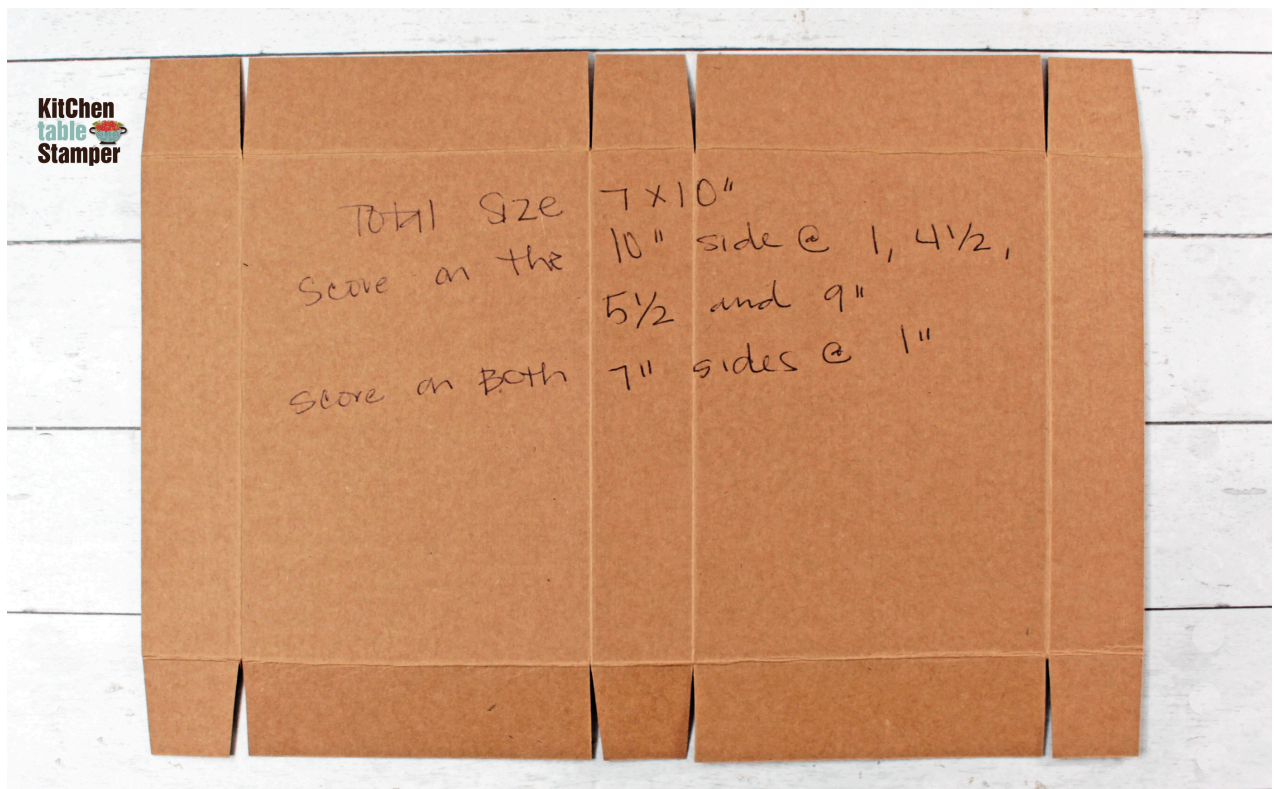 KitChen
table
Stamper
Total Size 7 x 10"
Score on the 10" side @ 1, 4 1/2,
5 1/2 and 9"
Score on Both 7" sides @ 1"